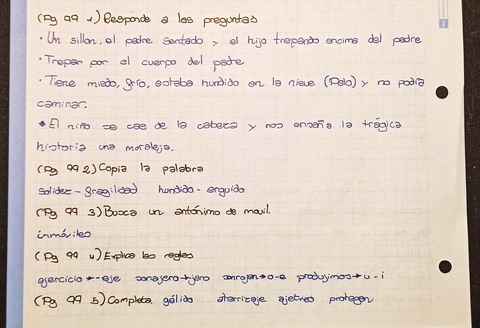 (Pg 99 1) Responde a las preguntas
• Un sillon, el padre sentado y el hijo trepando encima del padre
• Trepar por el cuerpo del padre
• Tiene miedo, frío, estaba hundido en la nieve (Pelo) y no podía
caminar.
• El niño se cae de la cabeza y nos enseña la trágica
historia una moraleja.
(Pg 99 2) Copia la palabra
solidez - fragilidad hundido - erguido
(Pg 99 3) Busca un antónimo de movil.
inmóviles
(Pg 99 4) Explica las reglas
ejercicio → eje consejero → jero produjimos → u - i
(Pg 99 5) Completa. gélido aterrizaje ajetreo protegen